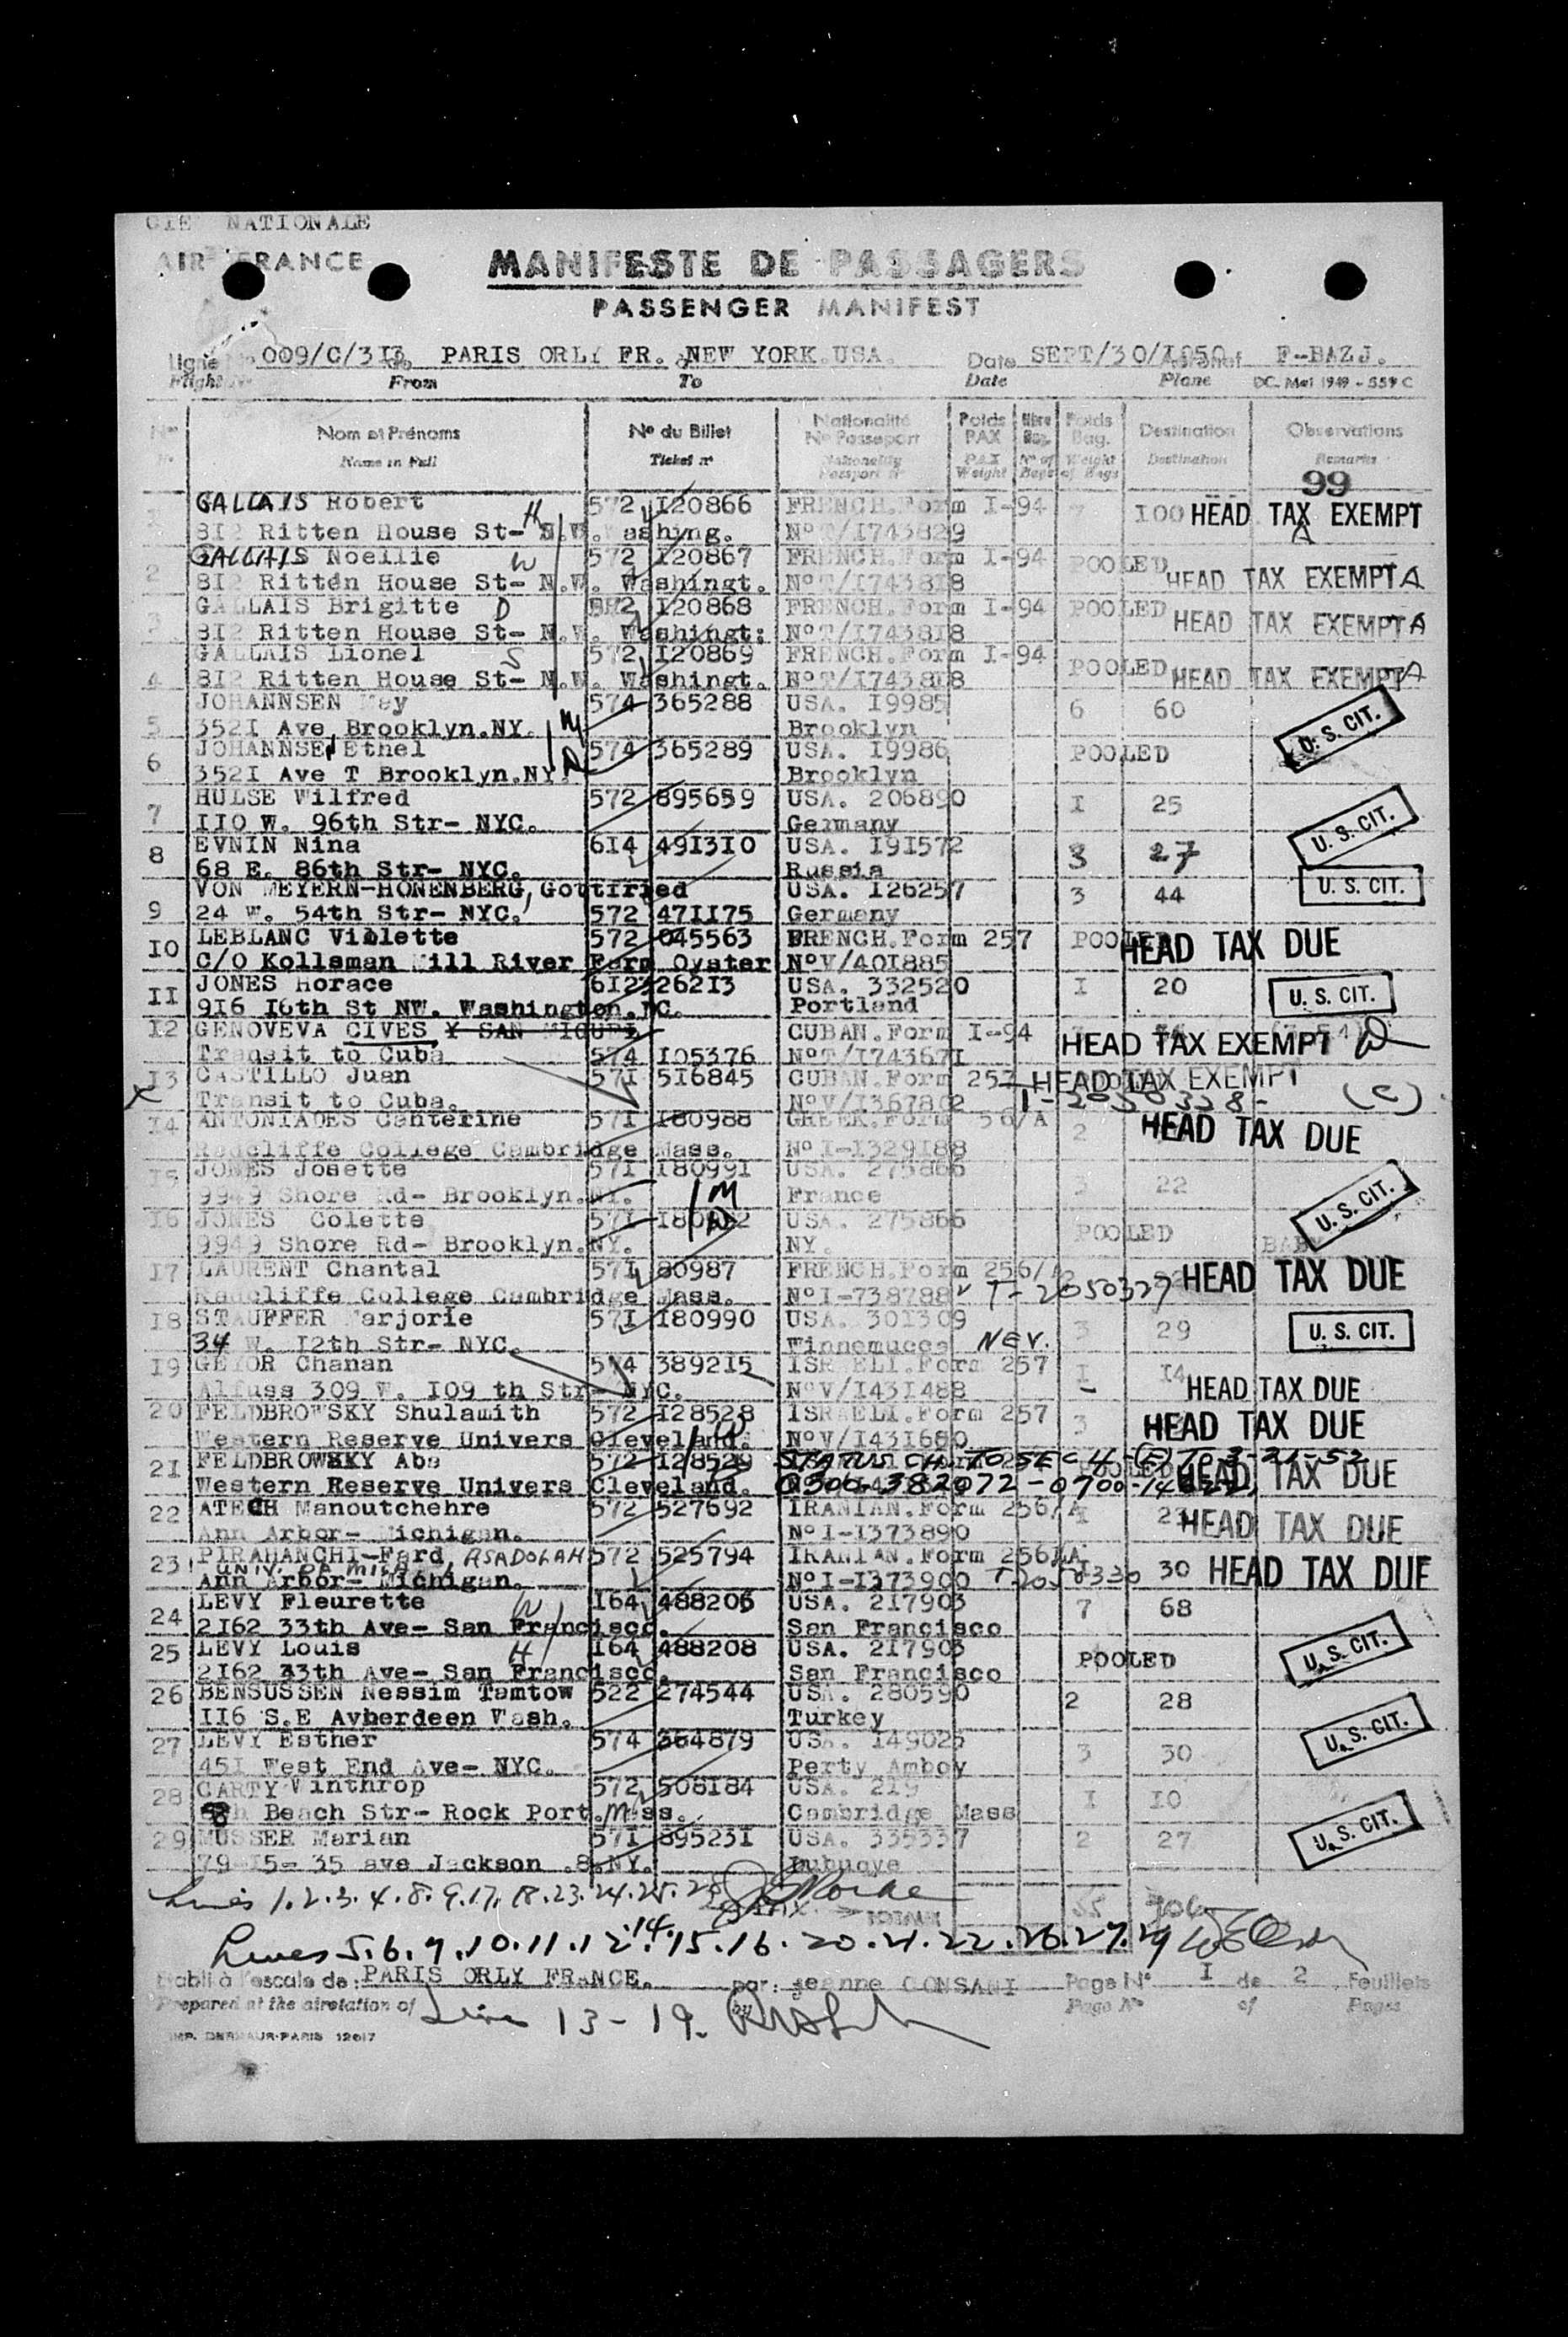 CIE NATIONALE
AIR FRANCE
MANIFESTE DE PASSAGERS
PASSENGER MANIFEST
Ligne N° 009/C/3I3 de PARIS ORLY FR. à NEW YORK.USA. Date SEPT/30/I950 Aéronef F-BAZJ.
Flight N° From To Date Plane DC. Mai 1949 - 559 C
N° Nom et Prénoms N° du Billet Nationalité N° Passeport Poids PAX Nbre Bag. Poids Bag. Destination Observations
N° Name in Full Ticket n° Nationality Passport N° PAX Weight N° of Bags Weight of Bags Destination Remarks
99
1 GALLAIS Robert H 572 I20866 FRENCH.Form I-94 7 I00 HEAD TAX EXEMPT
8I2 Ritten House St- N.W. Washing. N°T/I743829 A
2 GALLAIS Noellie W 572 I20867 FRENCH.Form I-94 POOLED
8I2 Ritten House St- N.W. Washingt. N°T/I7438I8 HEAD TAX EXEMPT A
3 GALLAIS Brigitte D 572 I20868 FRENCH.Form I-94 POOLED HEAD TAX EXEMPT A
8I2 Ritten House St- N.W. Washingt: N°T/I7438I8
GALLAIS Lionel S 572 I20869 FRENCH.Form I-94 POOLED
4 8I2 Ritten House St- N.W. Washingt. N°T/I7438I8 HEAD TAX EXEMPT A
JOHANNSEN May 574 365288 USA. I9985 6 60
5 352I Ave Brooklyn.NY. M Brooklyn U. S. CIT.
JOHANNSEN Ethel 574 365289 USA. I9986 POOLED
6 352I Ave T Brooklyn.NY. D Brooklyn
HULSE Wilfred 572 895659 USA. 206890 I 25
7 II0 W. 96th Str- NYC. Germany U. S. CIT.
8 EVNIN Nina 6I4 49I3I0 USA. I9I572 3 27
68 E. 86th Str- NYC. Russia
VON MEYERN-HONENBERG, Gottfried USA. I26257 3 44 U. S. CIT.
9 24 W. 54th Str- NYC. 572 47II75 Germany
10 LEBLANC Violette 572 045563 FRENCH.Form 257 POOLED HEAD TAX DUE
C/O Kollsman Mill River Farm Oyster N°V/40I885
11 JONES Horace 6I2 3262I3 USA. 332520 I 20 U. S. CIT.
9I6 I6th St NW. Washington.DC. Portland
12 GENOVEVA CIVES Y SAN MIGUEL CUBAN.Form I-94 HEAD TAX EXEMPT
Transit to Cuba 574 I05376 N°T/I74367I
13 CASTILLO Juan 57I 5I6845 CUBAN.Form 257 HEAD TAX EXEMPT
X Transit to Cuba. N°V/I367802 T-2050328- (C)
14 ANTONIADES Canterine 57I I80988 GREEK.Form 56/A 2 HEAD TAX DUE
Radcliffe College Cambridge Mass. N°I-I329I88
15 JONES Josette 57I I8099I USA. 275866 3 22
9949 Shore Rd- Brooklyn.NY. M France U. S. CIT.
16 JONES Colette 57I I80992 USA. 275866 POOLED
9949 Shore Rd- Brooklyn.NY. NY. BABY
17 LAURENT Chantal 57I 80987 FRENCH.Form 256/A HEAD TAX DUE
Radcliffe College Cambridge Mass. N°I-738788 T-2050329
18 STAUFFER Marjorie 57I I80990 USA. 30I309 3 29 U. S. CIT.
34 W. I2th Str- NYC. Winnemucca NEV.
19 GEYOR Chanan 574 3892I5 ISRAELI.Form 257 I I4
Alfuss 309 W. I09 th Str- NYC. N°V/I43I488 HEAD TAX DUE
20 FELDBROWSKY Shulamith 572 I28528 ISRAELI.Form 257 3 HEAD TAX DUE
Western Reserve Univers Cleveland. W N°V/I43I680
21 FELDBROWSKY Aba 572 I28529 STATUS CH. TO SEC 4-(E) TO 3-21-52 POOLED
Western Reserve Univers Cleveland. 0300-382072-0700- HEAD TAX DUE
22 ATECH Manoutchehre 572 527692 IRANIAN.Form 256/A I HEAD TAX DUE
Ann Arbor- Michigan. N°I-I373890
23 PIRAHANCHI-Fard, ASADOLAH 572 525794 IRANIAN.Form 256/A 30 HEAD TAX DUE
UNIV. OF MICH.
Ann Arbor- Michigan. N°I-I373900 T-2050330
LEVY Fleurette W I64 488206 USA. 2I7903 7 68
24 2I62 33th Ave- San Francisco. San Francisco
25 LEVY Louis H I64 488208 USA. 2I7903 POOLED U. S. CIT.
2I62 33th Ave- San Francisco. San Francisco
26 BENSUSSEN Nessim Tamtow 522 274544 USA. 280590 2 28
II6 S.E Avherdeen Wash. Turkey U. S. CIT.
27 LEVY Esther 574 364879 USA. I49025 3 30
45I West End Ave- NYC. Perty Amboy
28 CARTY Winthrop 572 508I84 USA. 2I9 I I0
8 Beach Str- Rock Port.Mass. Cambridge Mass U. S. CIT.
29 MUSSER Marian 57I 89523I USA. 335337 2 27
79-I5- 35 ave Jackson .8.NY. Dubuqye
Lines 1.2.3.4.8.9.17.18.23.24.25.28
TOTAUX 55 706
Lines 5.6.7.10.11.12.14.15.16.20.21.22.26.27.29
Etabli à l'escale de: PARIS ORLY FRANCE. par: jeanne CONSANI Page N° I de 2 Feuillets
Prepared at the airstation of by Page N° of Pages
Lines 13-19.
IMP. DERMAUR-PARIS 12617